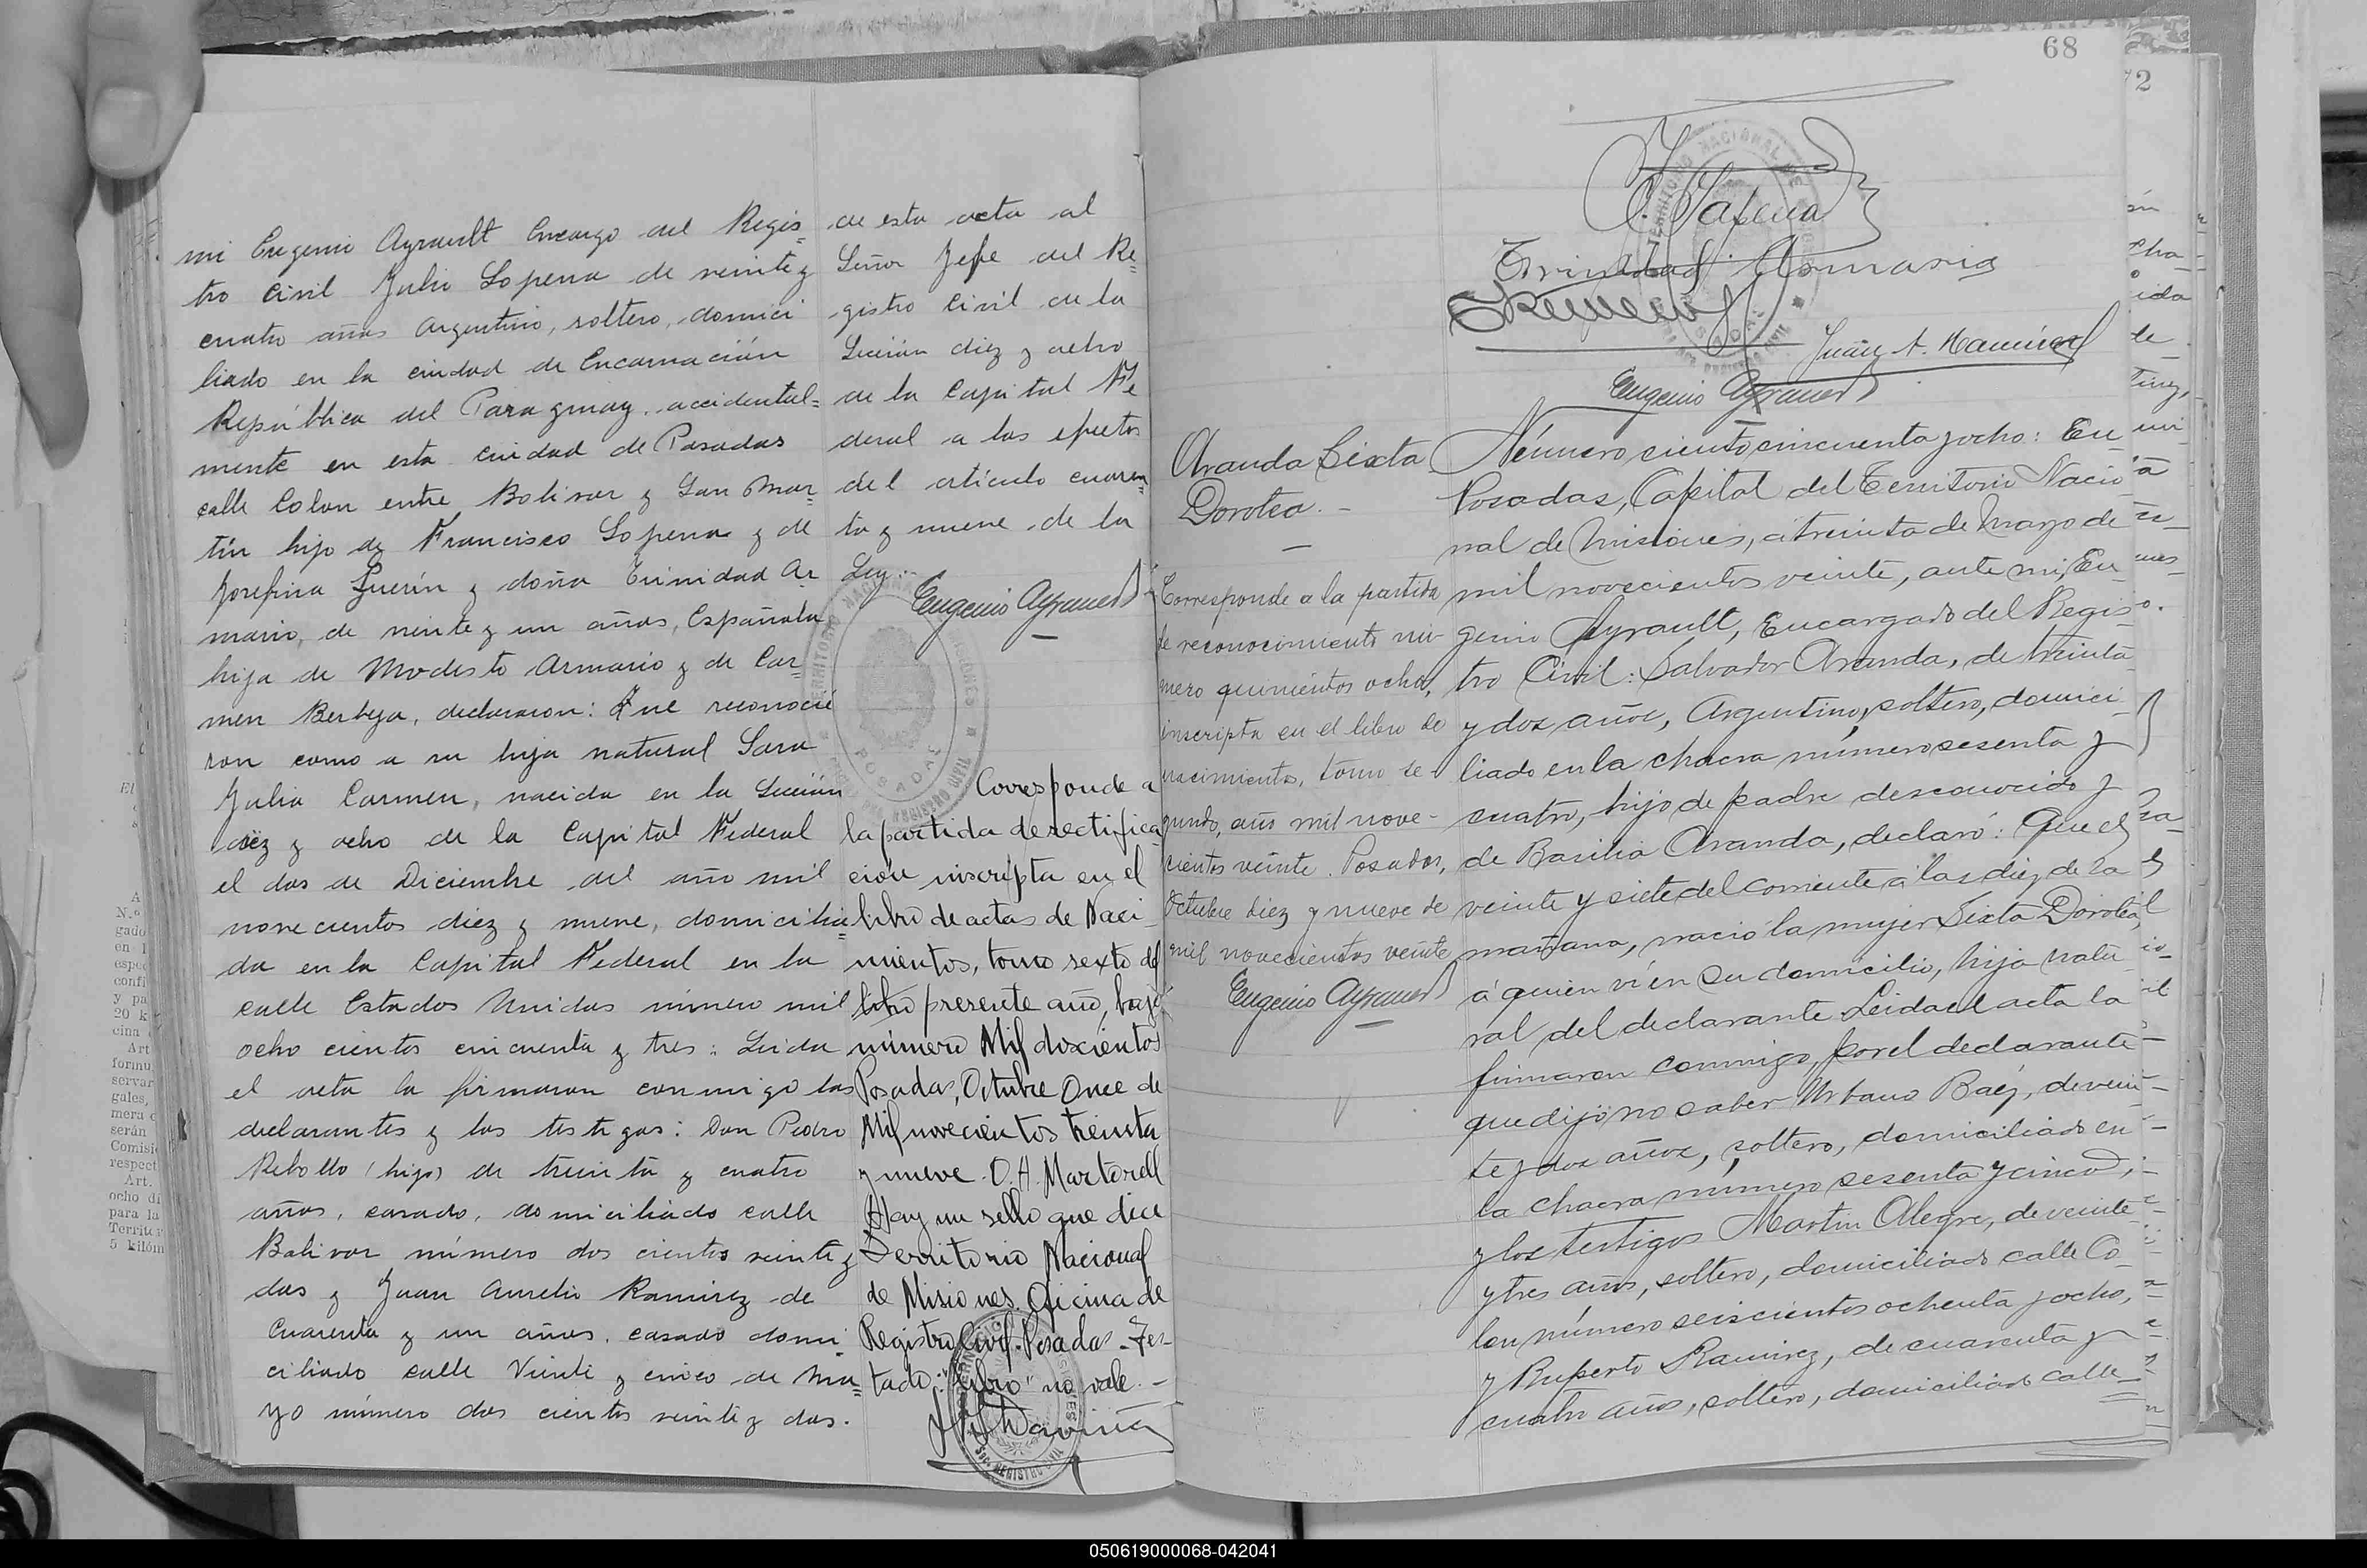 mi Eugenio Ayrault Encargo del Regis=
tro Civil Julio Lopena de veinte y
cuatro años Argentino, soltero, domici
liado en la ciudad de Encarnación
República del Paraguay, accidental=
mente en esta ciudad de Posadas
calle Colon entre Bolivar y San Mar
tín hijo de Francisco Lopena y de
Josefina Guerín y doña Trinidad Ar
mario, de veinte y un años, Española
hija de Modesto Armario y de Car
men Berbeja, declararon: Que reconocie
ron como a su hija natural Sara
Julia Carmen, nacida en la Sección
diez y ocho de la Capital Federal
el dos de Diciembre del año mil
novecientos diez y nueve, domicilia=
da en la Capital Federal en la
calle Estados Unidos número mil
ocho cientos cincuenta y tres: Leida
el acta la firmaron conmigo los
declarantes y los testigos: Don Pedro
Rebollo (hijo) de treinta y cuatro
años, casado, domiciliado calle
Bolivar número dos cientos veinte y
dos y Juan Aurelio Ramirez de
Cuarenta y un años, casado domi
ciliado calle Veinte y cinco de Ma=
yo número dos cientos veinte y dos.
de esta acta al
Señor Jefe del Re=
gistro Civil de la
Sección diez y ocho
de la Capital Fe
deral a los efectos
del artículo cuaren
ta y nueve de la
Ley.-
Eugenio Ayrault
Corresponde a
la partida de rectifica
ción inscripta en el
libro de actas de Naci-
mientos, tomo sexto del
libro presente año, bajo
número Mil doscientos
Posadas, Octubre Once de
Mil novecientos treinta
y nueve. O. H. Martorell
Hay un sello que dice
Territorio Nacional
de Misiones. Oficina de
Registro Civil. Posadas - Tes-
tado: "libro" no vale.-
68
2
Trinidad Armario
Juan A. Ramírez
Eugenio Ayrault
Aranda Sixta
Dorotea.-
Corresponde a la partida
de reconocimiento nú-
mero quinientos ocho,
inscripta en el libro de
nacimientos, tomo se-
gundo, año mil nove-
cientos veinte. Posadas,
Octubre diez y nueve de
mil novecientos veinte
Eugenio Ayrault
Número ciento cincuenta y ocho: En
Posadas, Capital del Territorio Nacio
nal de Misiones, a treinta de Mayo de
mil novecientos veinte, ante mi, Eu
genio Ayrault, Encargado del Regis
tro Civil: Salvador Aranda, de treinta
y dos años, Argentino, soltero, domici
liado en la chacra número sesenta y
cuatro, hijo de padre desconocido y
de Basilia Aranda, declaró: Que el
veinte y siete del corriente a las diez de la
mañana, nació la mujer Sixta Dorotea,
á quien ví en su domicilio, hija natu
ral del declarante Leida el acta la
firmaron conmigo, por el declarante
que dijo no saber Urbano Baéz, de vein
te y dos años, soltero, domiciliado en
la chacra número sesenta y cinco,
y los testigos Martin Alegre, de veinte
y tres años, soltero, domiciliado calle Co
lon número seiscientos ochenta y ocho,
y Ruperto Ramirez, de cuarenta y
cuatro años, soltero, domiciliado calle